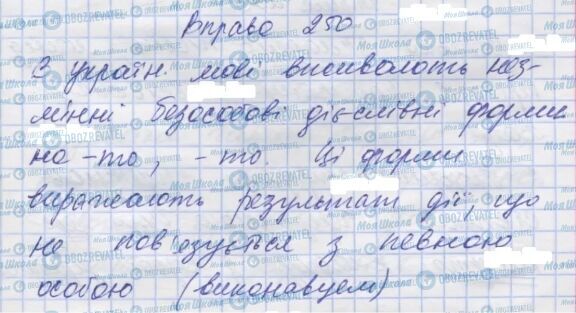 Вправа 250
З україн. мові вживають нез-
мінні безособові дієслівні форми
на -но, -то. Ці форми
виражають результат дії, що
не пов'язується з певною
особою (виконавцем)